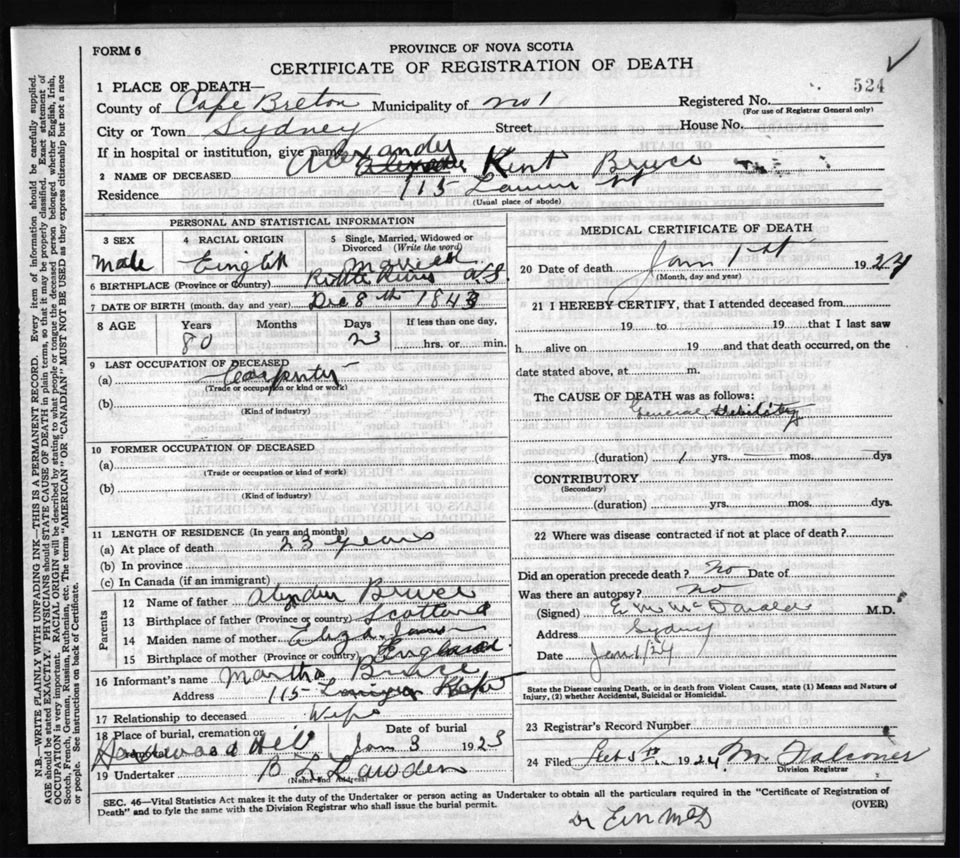 FORM 6
PROVINCE OF NOVA SCOTIA
CERTIFICATE OF REGISTRATION OF DEATH
524
1 PLACE OF DEATH—
County of Cape Breton Municipality of No 1 Registered No.
(For use of Registrar General only)
City or Town Sydney Street House No.
If in hospital or institution, give name
2 NAME OF DECEASED Alexander Kent Bruce
Residence 115
(Usual place of abode)
PERSONAL AND STATISTICAL INFORMATION
3 SEX Male
4 RACIAL ORIGIN English
5 Single, Married, Widowed or Divorced (Write the word) Married
6 BIRTHPLACE (Province or Country) N S
7 DATE OF BIRTH (month, day and year) Dec 8th 1843
8 AGE Years 80 Months Days 23 If less than one day, hrs. or min.
9 LAST OCCUPATION OF DECEASED
(a) Carpenter
(Trade or occupation or kind or work)
(b)
(Kind of industry)
10 FORMER OCCUPATION OF DECEASED
(a)
(Trade or occupation or kind of work)
(b)
(Kind of industry)
11 LENGTH OF RESIDENCE (In years and months)
(a) At place of death 23 years
(b) In province
(c) In Canada (if an immigrant)
Parents
12 Name of father Bruce
13 Birthplace of father (Province or country) Scotland
14 Maiden name of mother Eliza
15 Birthplace of mother (Province or country) England
16 Informant's name Martha Bruce
Address 115
17 Relationship to deceased Wife
18 Place of burial, cremation or Hardwood Hill
Date of burial Jan 3 1923
19 Undertaker
(Name and Address)
MEDICAL CERTIFICATE OF DEATH
20 Date of death Jan 1st 1924
(Month, day and year)
21 I HEREBY CERTIFY, that I attended deceased from
19 to 19 that I last saw
h alive on 19 and that death occurred, on the
date stated above, at m.
The CAUSE OF DEATH was as follows:
General Debility
(duration) 1 yrs. — mos. — dys
CONTRIBUTORY
(Secondary)
(duration) yrs. mos. dys.
22 Where was disease contracted if not at place of death?
Did an operation precede death? No Date of
Was there an autopsy? No
(Signed) McDonald M.D.
Address Sydney
Date Jan 1/24
State the Disease causing Death, or in death from Violent Causes, state (1) Means and Nature of
Injury, (2) whether Accidental, Suicidal or Homicidal.
23 Registrar's Record Number
24 Filed 1924 M. Falconer
Division Registrar
SEC. 46—Vital Statistics Act makes it the duty of the Undertaker or person acting as Undertaker to obtain all the particulars required in the "Certificate of Registration of
Death" and to fyle the same with the Division Registrar who shall issue the burial permit.
(OVER)
N.B.—WRITE PLAINLY WITH UNFADING INK—THIS IS A PERMANENT RECORD. Every item of information should be carefully supplied.
AGE should be stated EXACTLY. PHYSICIANS should STATE CAUSE OF DEATH in plain terms, so that it may be properly classified. Exact statement of
OCCUPATION is very important. RACIAL ORIGIN will be described by stating to what people or tongue the deceased person belonged whether English, Irish,
Scotch, French, German, Russian, Ruthenian, etc. The terms "AMERICAN" OR "CANADIAN" MUST NOT BE USED as they express citizenship but not a race
or people. See instructions on back of Certificate.